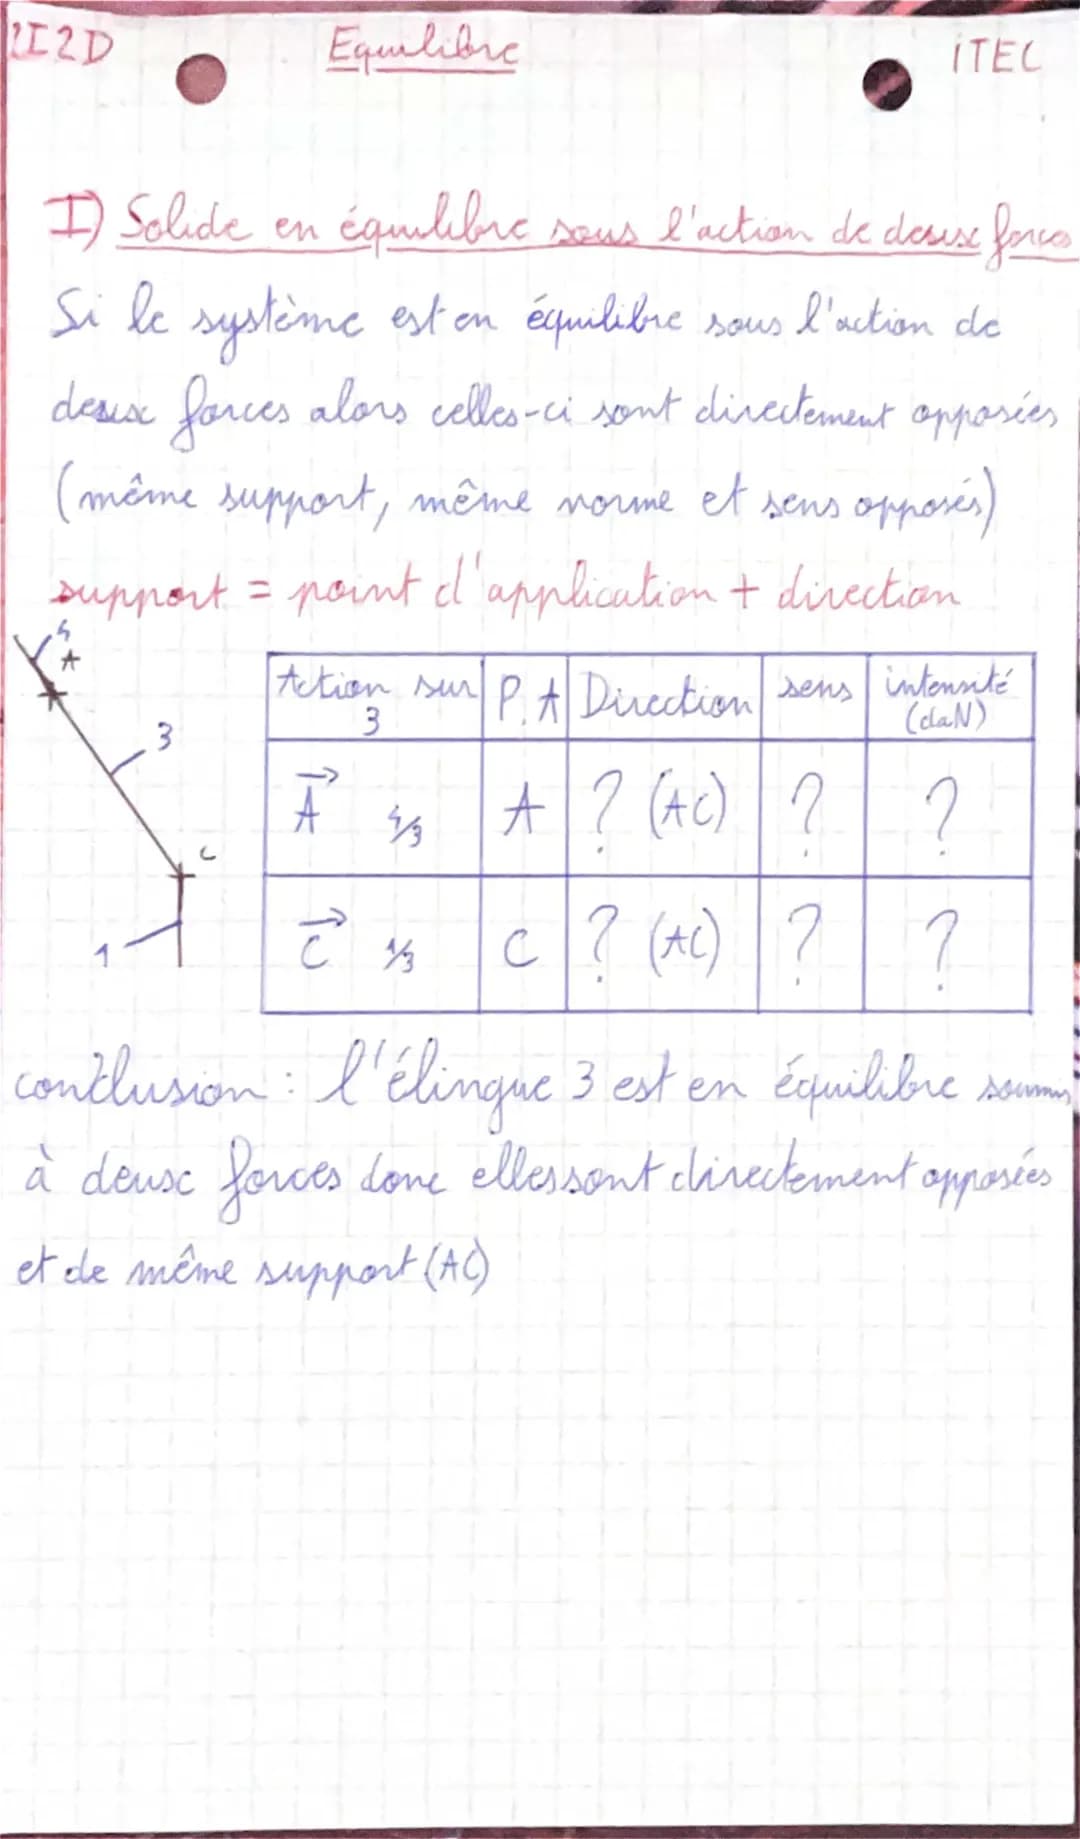 2I2D Equilibre ITEC
I) Solide en équilibre sous l'action de deux forces
Si le système est en équilibre sous l'action de
deux forces alors celles-ci sont directement opposées
(même support, même norme et sens opposés)
support = point d'application + direction
4
A
3
C
1
Action sur 3 P.A Direction sens intensité (daN)
A 4/3 A ? (AC) ? ?
C 1/3 C ? (AC) ? ?
conclusion : l'élingue 3 est en équilibre soumis
à deux forces donc elles sont directement opposées
et de même support (AC)